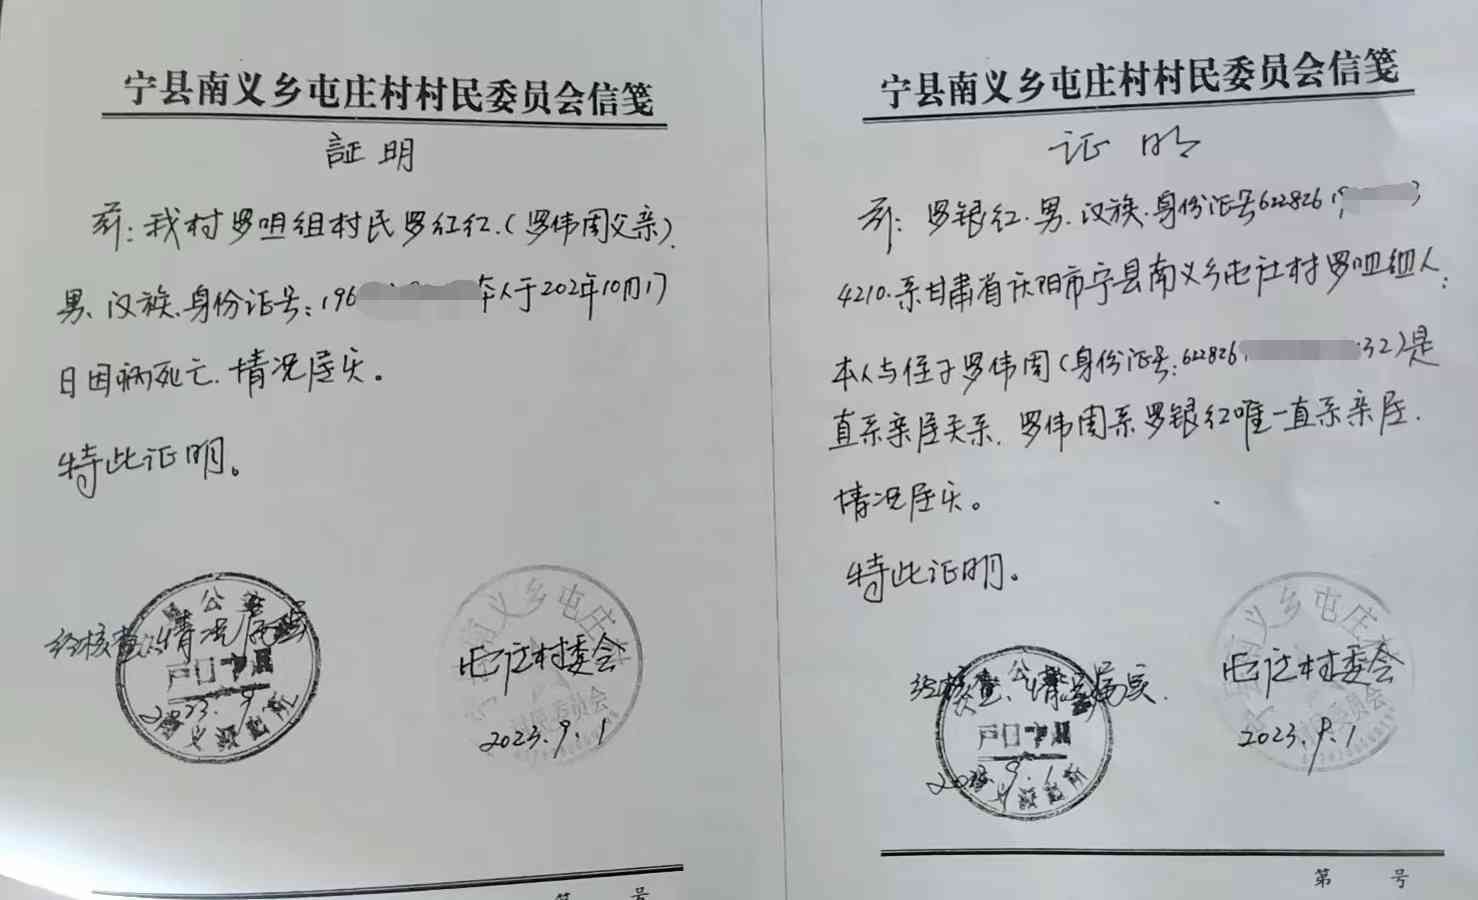 宁县南义乡屯庄村村民委员会信笺
証明
兹:我村罗咀组村民罗红红.(罗伟周父亲).
男、汉族、身份证号:196 本人于202年10月17
日因病死亡.情况属实。
特此证明。
经核查,情况属实
户口专用
2023.9.1
南义乡屯庄村
村民委员会
屯庄村委会
2023.9.1
第 号
宁县南义乡屯庄村村民委员会信笺
证明
兹:罗银红.男.汉族.身份证号622826
4210.系甘肃省庆阳市宁县南义乡屯庄村罗咀组人.
本人与侄子罗伟周(身份证号:622826 32)是
直系亲属关系.罗伟周系罗银红唯一直系亲属.
情况属实。
特此证明。
经核查、情况属实.
户口专用
2023.9.1
南义乡屯庄村
村民委员会
屯庄村委会
2023.9.1
第 号